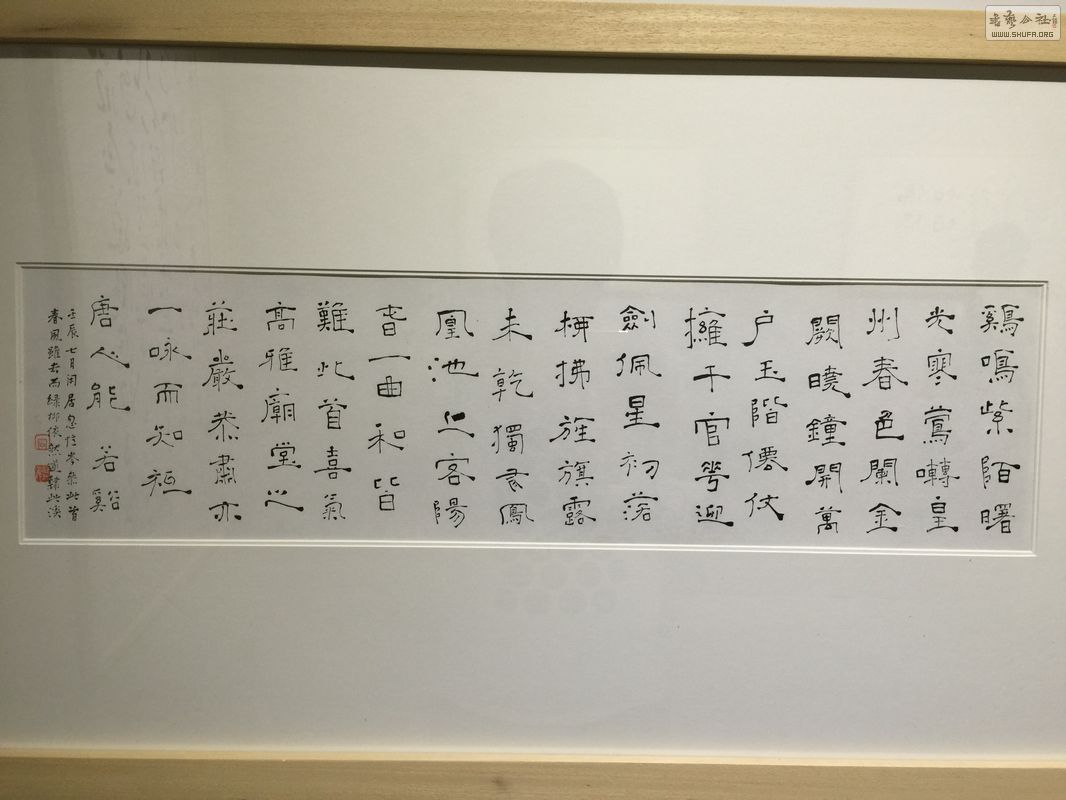 鷄鳴紫陌曙
光寒鶯囀皇
州春色闌金
闕曉鐘開萬
户玉階僊仗
擁千官花迎
劍佩星初落
柳拂旌旗露
未乾獨有鳳
凰池上客陽
春一曲和皆
難此首喜氣
高雅廟堂之
莊嚴恭肅亦
一詠而知
唐人能 若谿
壬辰七月閑居忽憶岑參此首
春風雖去而綠柳依然
書藝公社
WWW.SHUFA.ORG